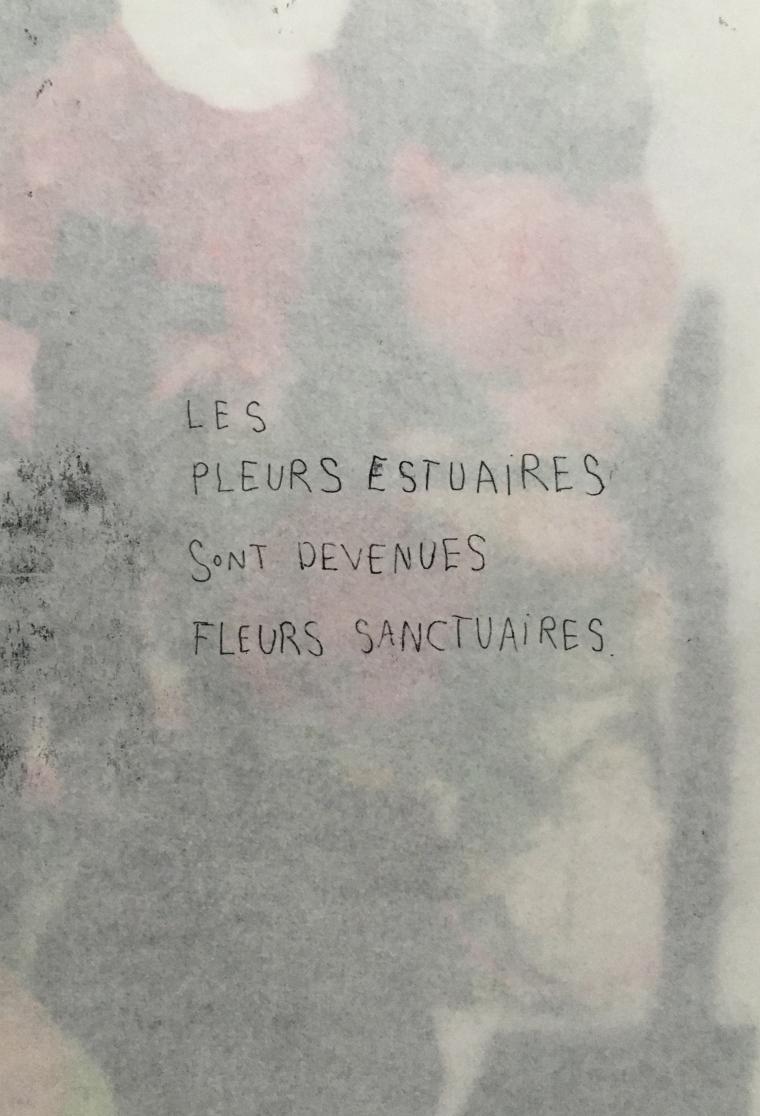 LES
PLEURS ESTUAiRES
SONT DEVENUES
FLEURS SANCTUAiRES.